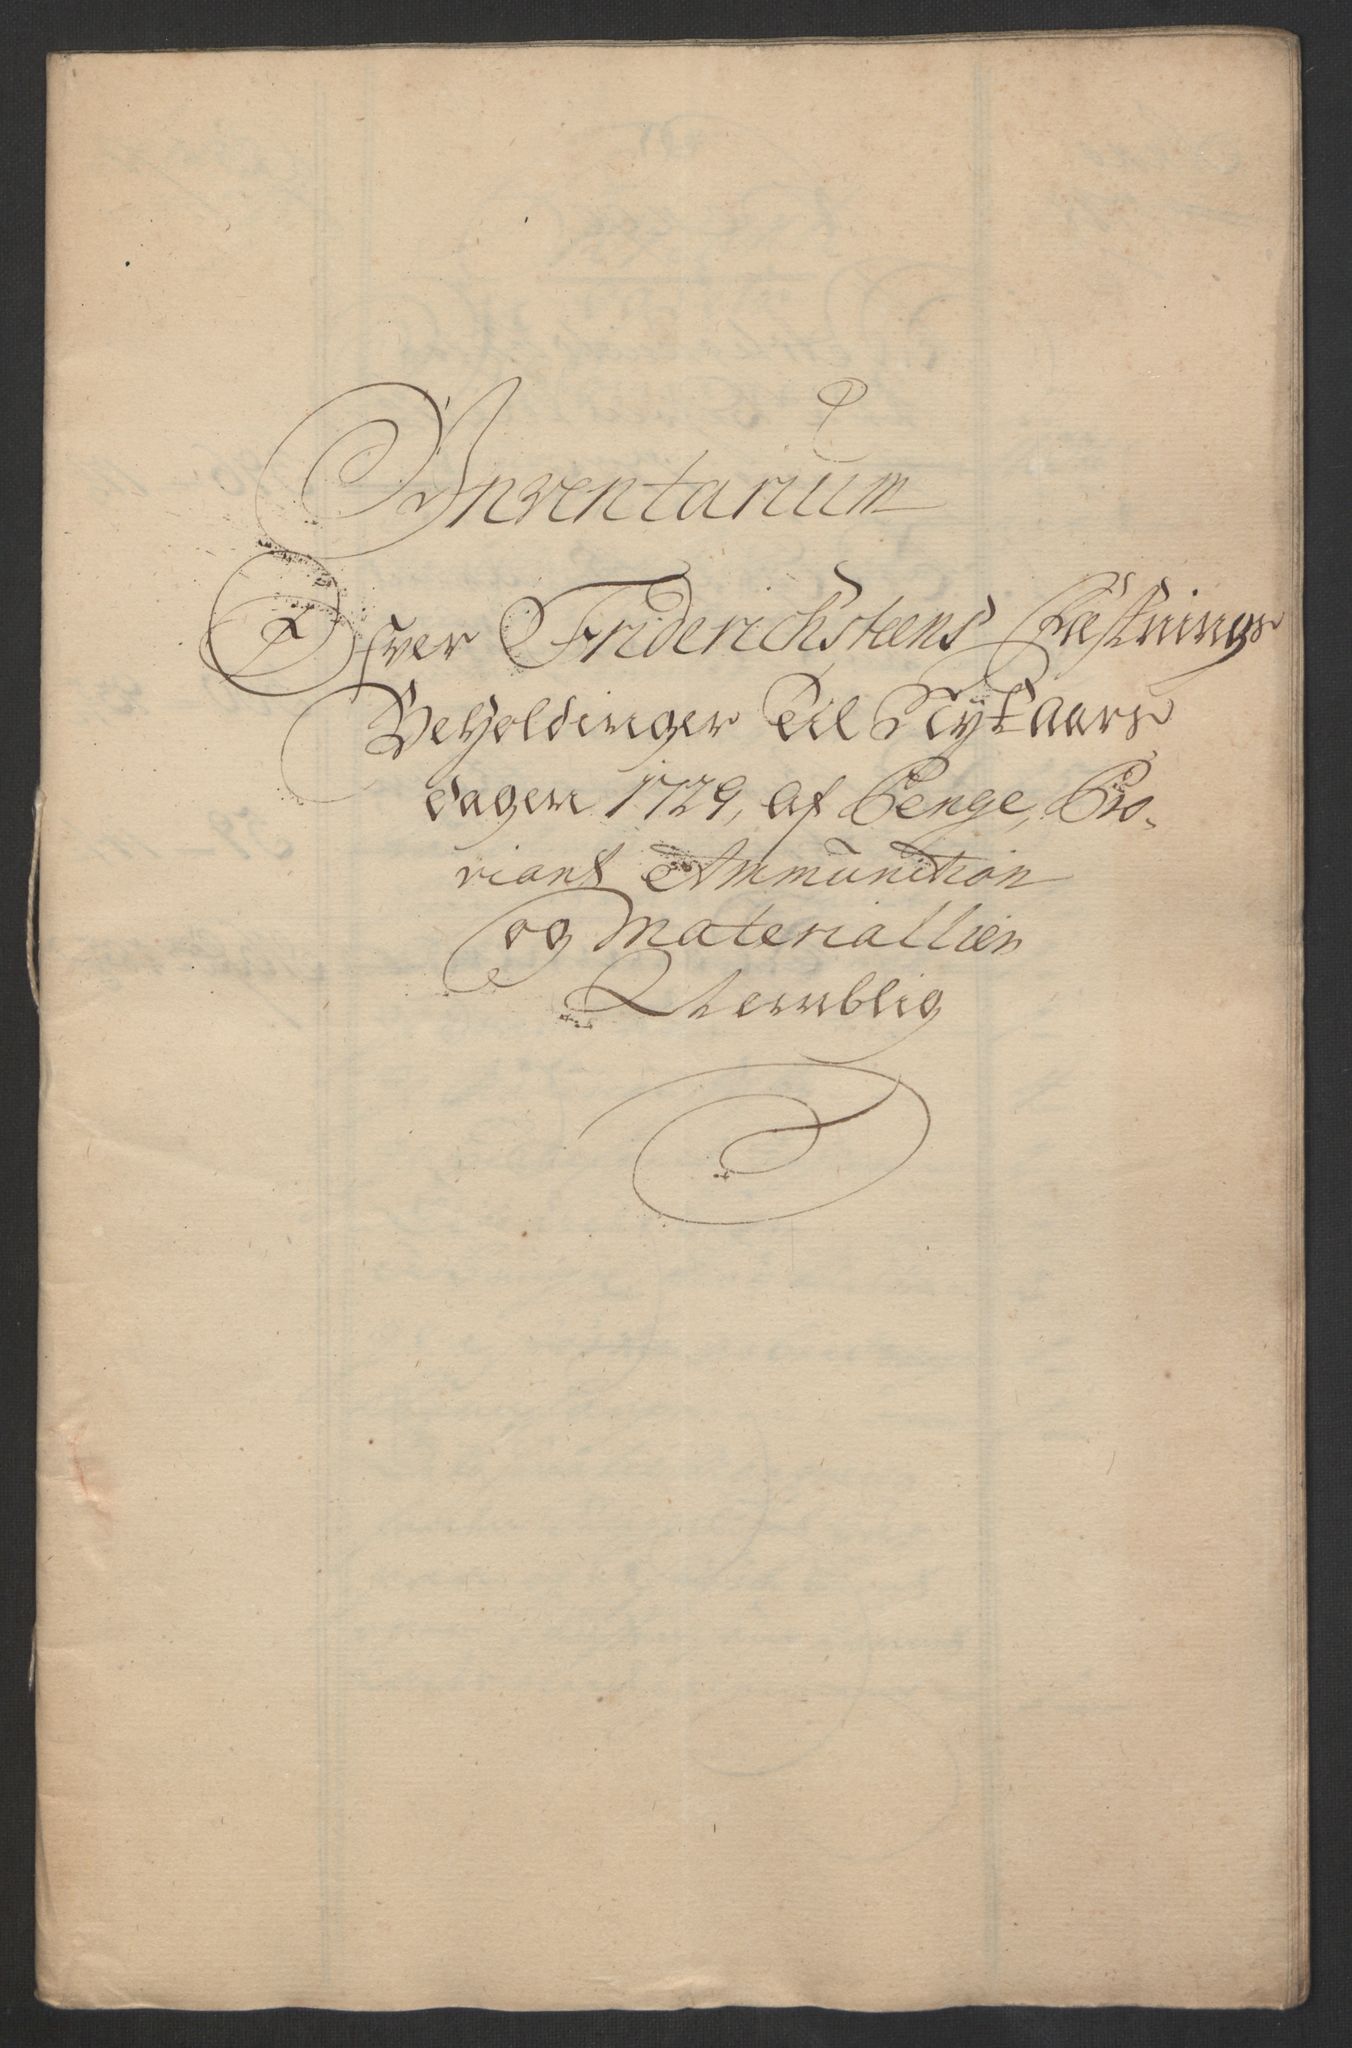 Inventarium
Ofver Friderichsteens Fæstnings
Beholdinger Til Nytaars
dagen 1729, af Penge, Pro„
viant Ammunition
og Materiallier